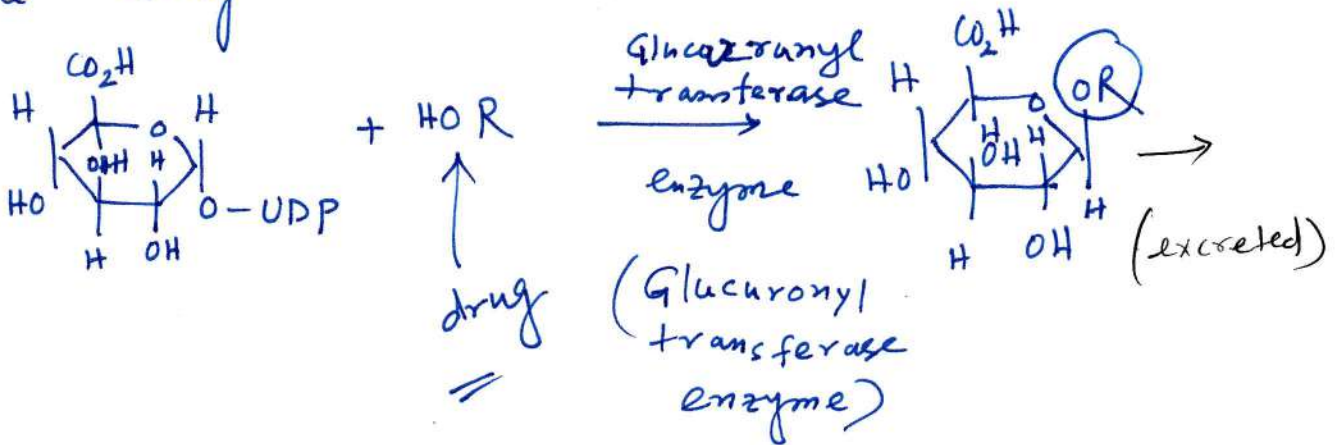 CO₂H
H
O
H
OHH
H
HO
O-UDP
H
OH
+ HOR
drug
Glucozrunyl
transferase
enzyme
(Glucuronyl
transferase
enzyme)
CO₂H
H
O
OR
H
H
OH
HO
H
H
OH
(excreted)